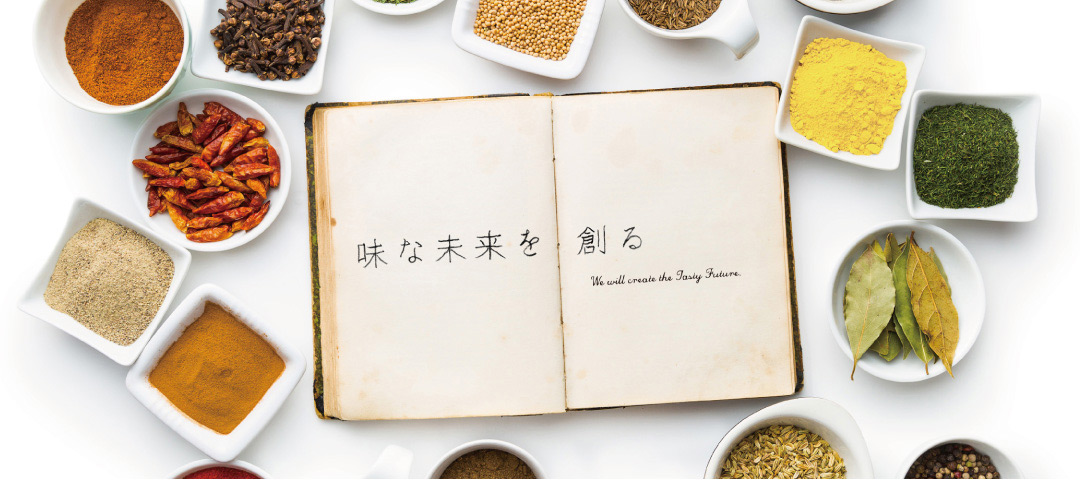 味な未来を創る
We will create the Tasty Future.